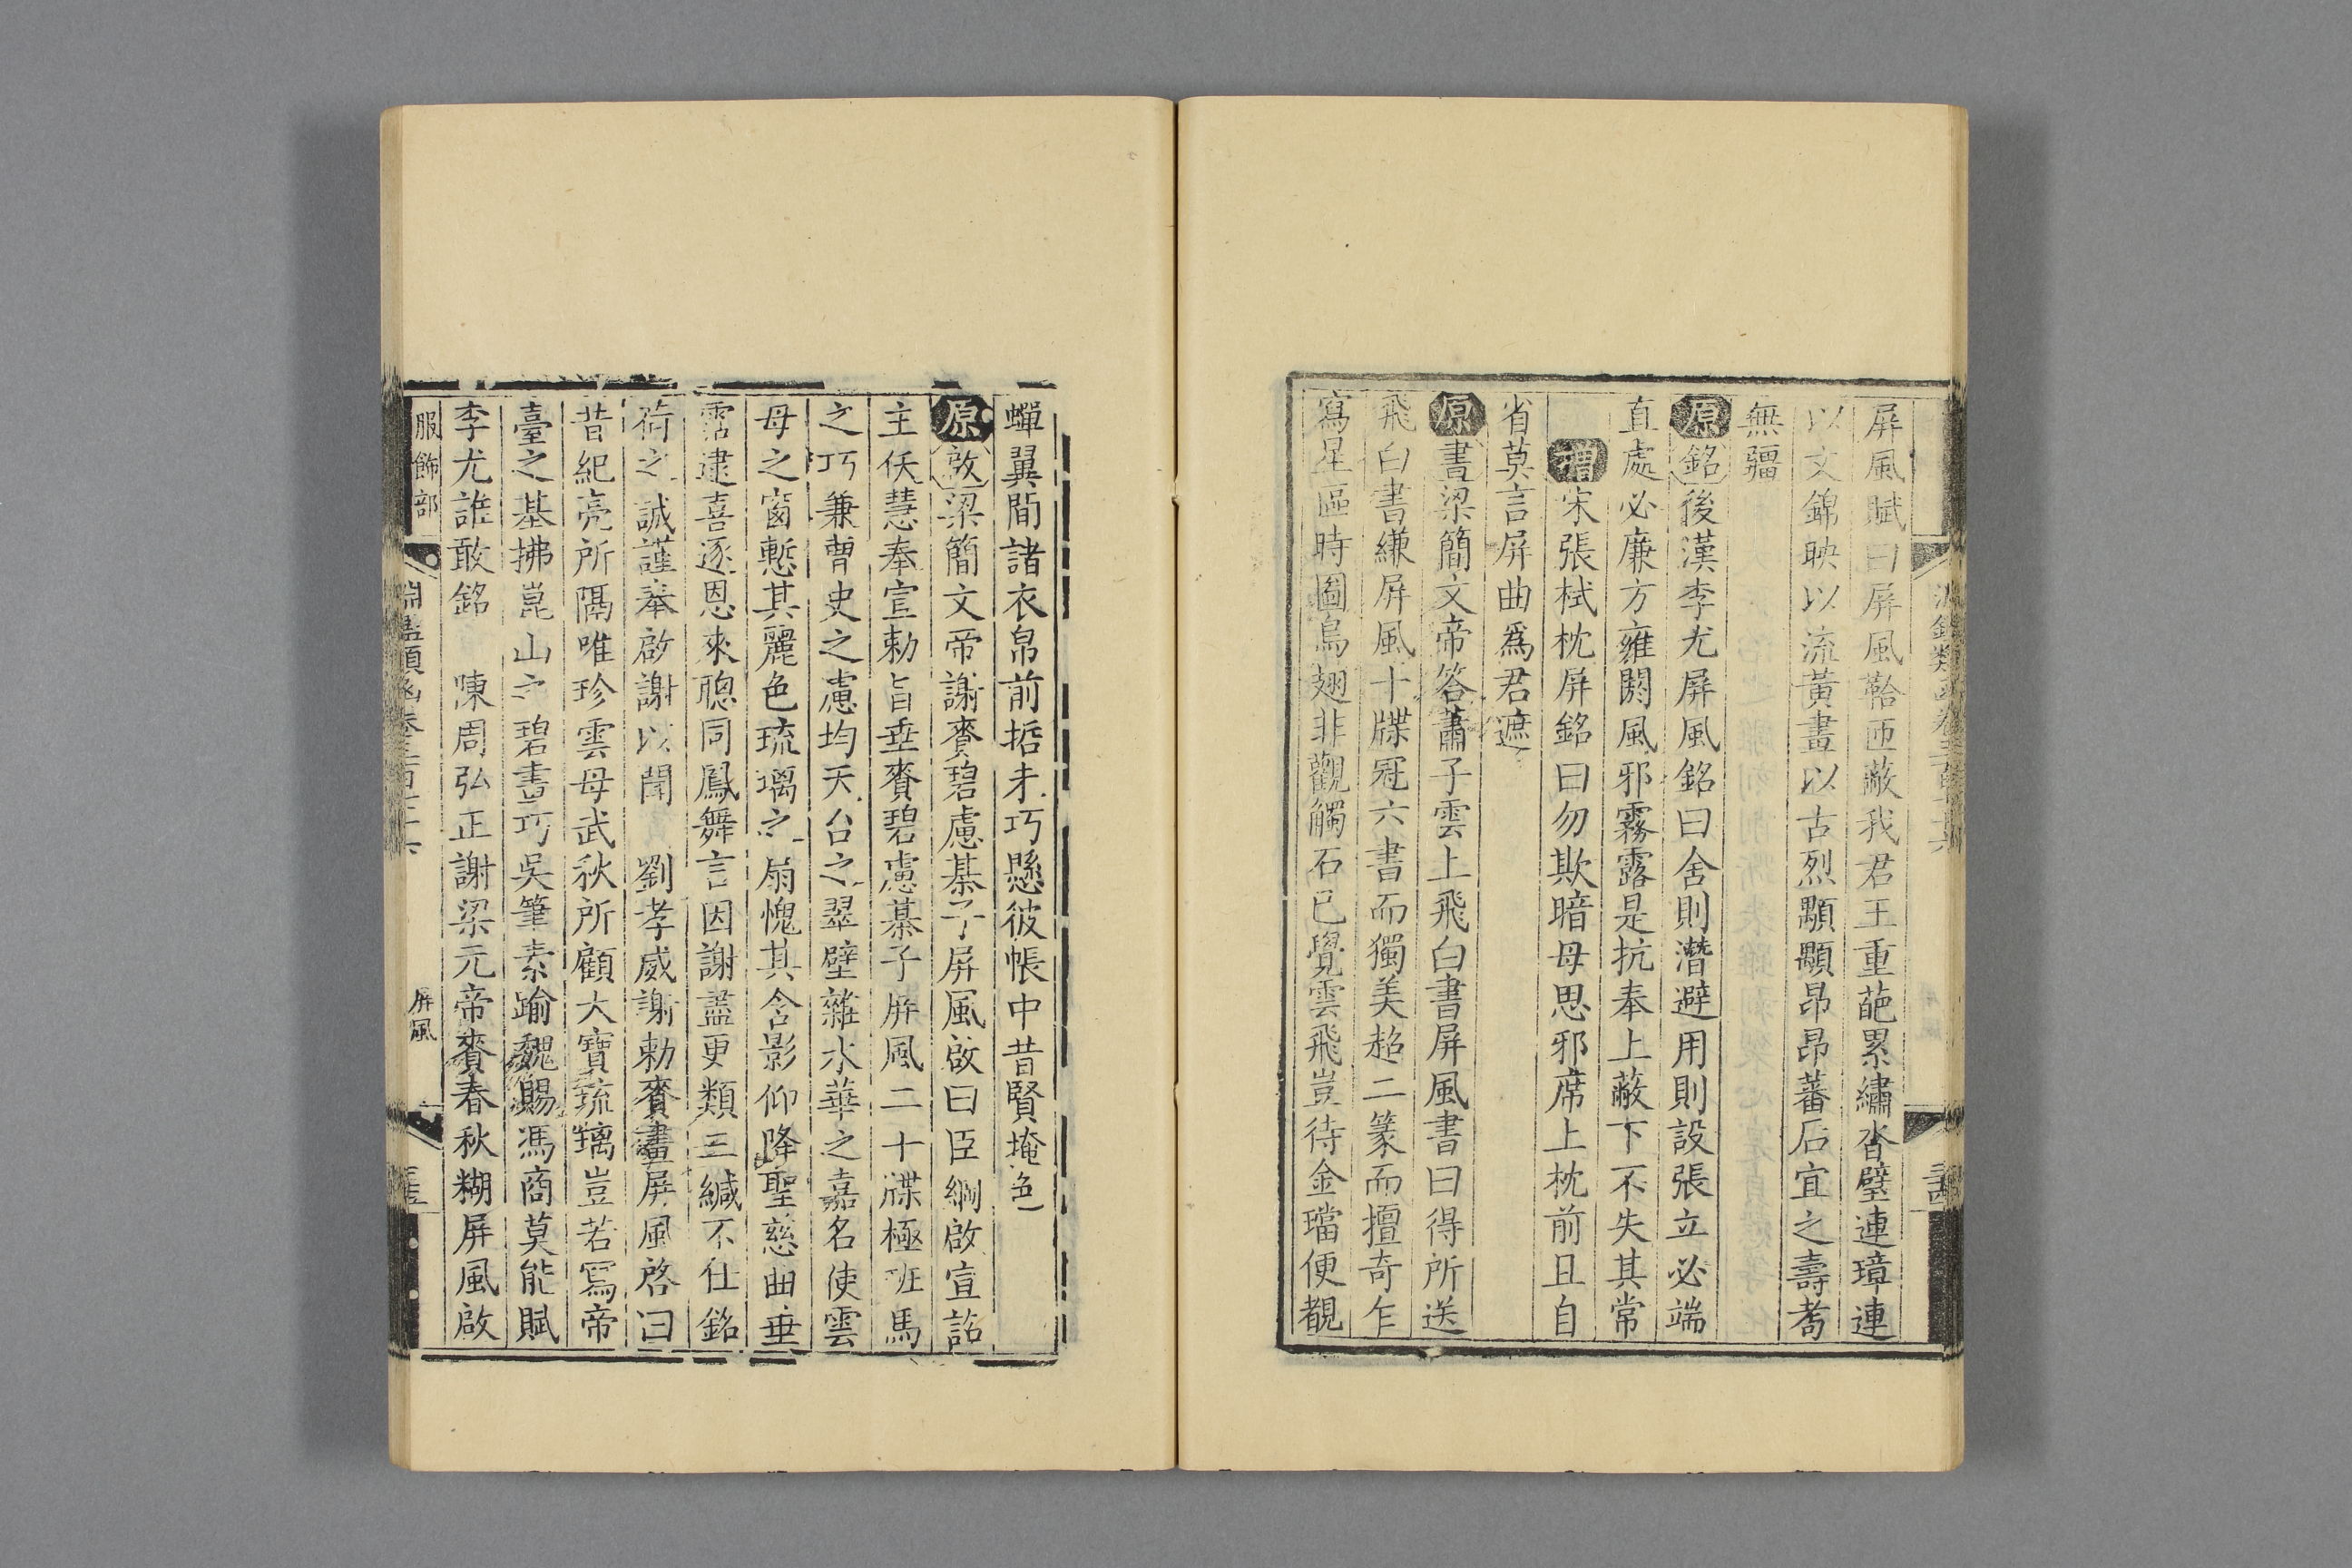 屏風賦曰屏風鞈匝蔽我君王重葩累繡沓璧連璋連
以文錦映以流黃畫以古烈顒顒昂昂蕃后宜之壽考
無疆
原銘後漢李尤屏風銘曰舍則潛避用則設張立必端
直處必廉方雍閼風邪霧露是抗奉上蔽下不失其常
增宋張栻枕屏銘曰勿欺暗毋思邪席上枕前且自
省莫言屏曲爲君遮
原書梁簡文帝答蕭子雲上飛白書屏風書曰得所送
飛白書縑屏風十牒冠六書而獨美超二篆而擅奇乍
寫星區時圖鳥翅非觀觸石已覺雲飛豈待金璫便覩
蟬翼間諸衣帛前哲未巧懸彼帳中昔賢掩色
原啟梁簡文帝謝賚碧慮棊子屏風啟曰臣綱啟宣詔
主伕慧奉宣勅旨垂賚碧慮棊子屏風二十牒極班馬
之巧兼曹史之慮均天台之翠壁雜水華之嘉名使雲
母之窗慙其麗色琉璃之扇愧其含影仰降聖慈曲垂
霑逮喜逐恩來聰同鳳舞言因謝盡更類三緘不任銘
荷之誠謹奉啟謝以聞　劉孝威謝勅賚畫屏風啓曰
昔紀亮所隔唯珍雲母武秋所顧大寶琉璃豈若寫帝
臺之基拂崑山之碧畫巧吳筆素踰魏賜馮商莫能賦
李尤誰敢銘　陳周弘正謝梁元帝賚春秋糊屏風啟
服飾部
淵鑑類函卷三百七十六
屏風